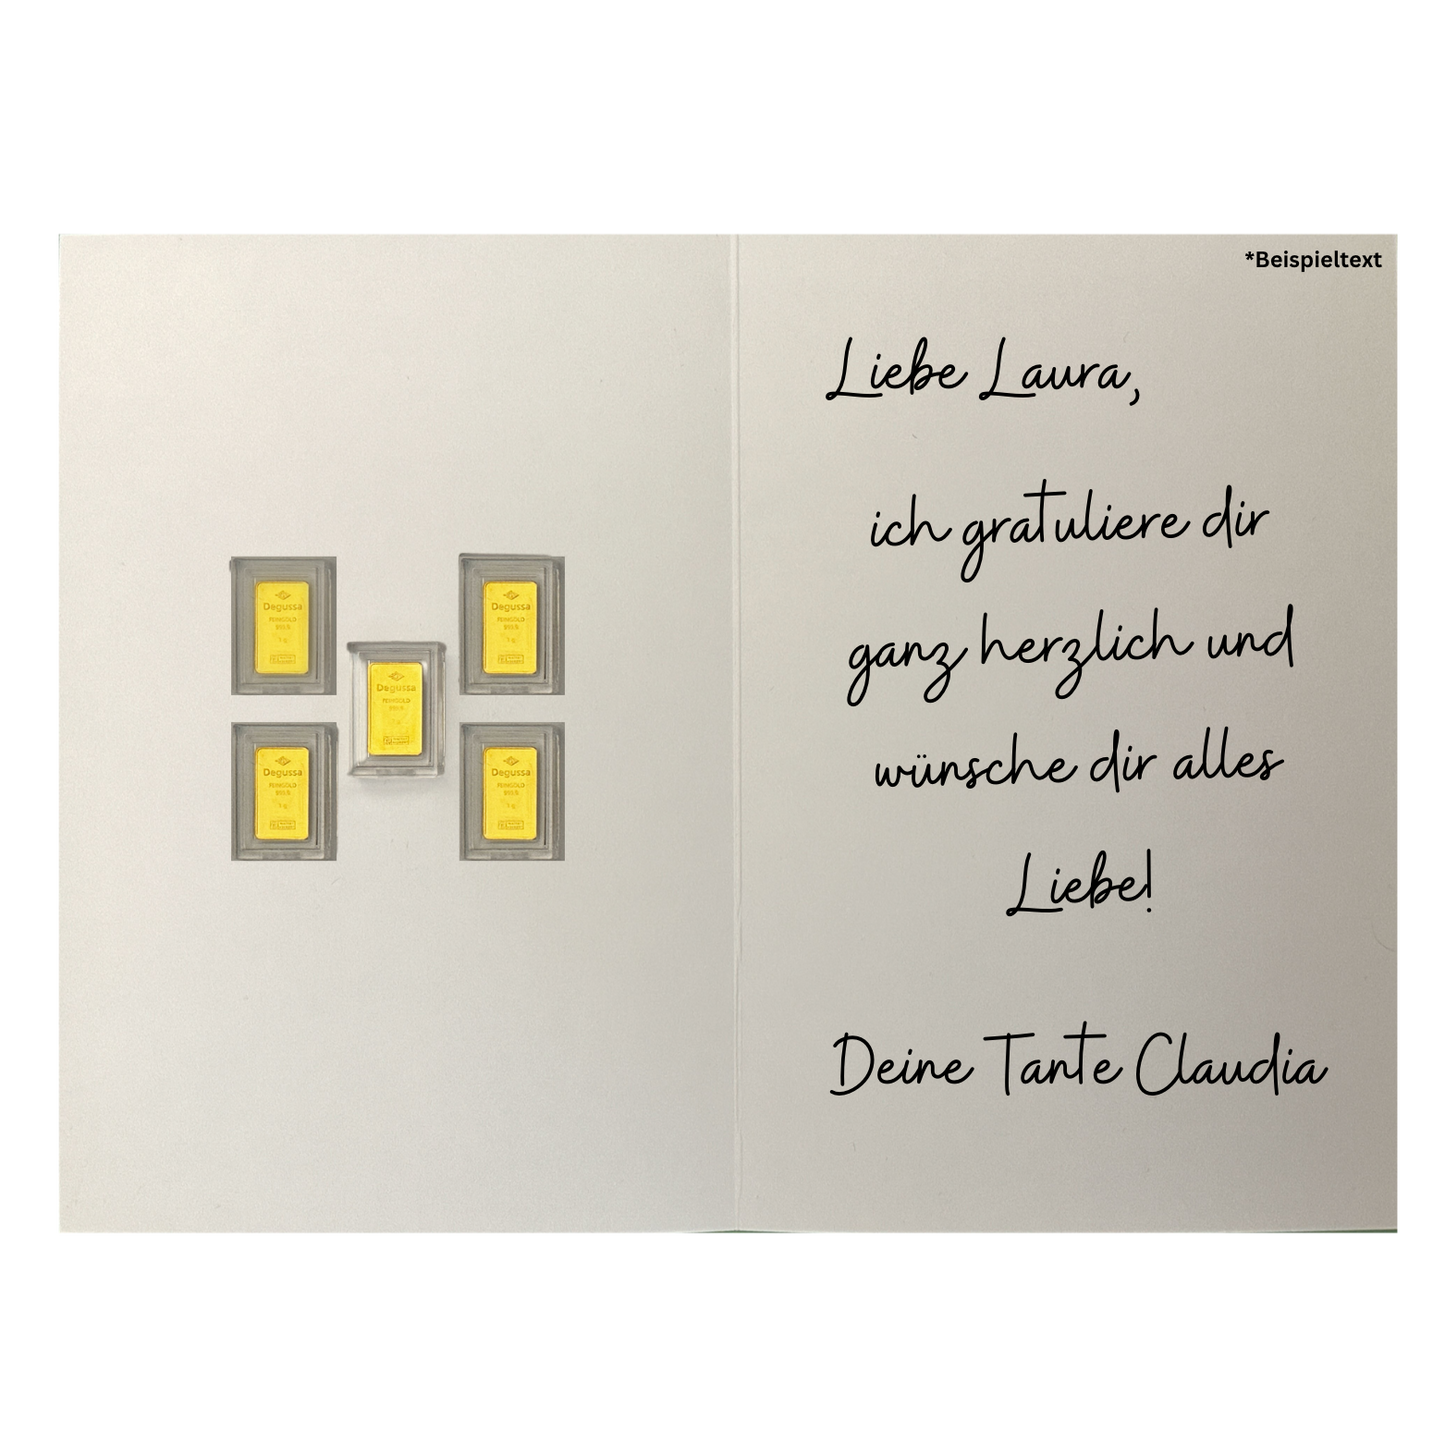 *Beispieltext
Liebe Laura,
ich gratuliere dir
ganz herzlich und
wünsche dir alles
Liebe!
Deine Tante Claudia
Degussa
FEINGOLD
999.9
1 g
Degussa
FEINGOLD
999.9
1 g
Degussa
FEINGOLD
999.9
1 g
Degussa
FEINGOLD
999.9
1 g
Degussa
FEINGOLD
999.9
1 g